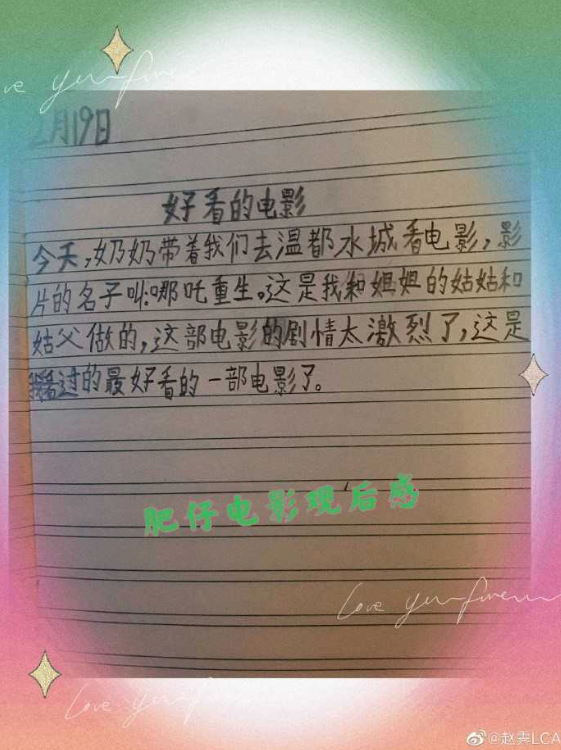 2月19日
好看的电影
今天,奶奶带着我们去温都水城看电影,影
片的名子叫:哪吒重生。这是我和姐姐的姑姑和
姑父做的,这部电影的剧情太激烈了,这是
我看过的最好看的一部电影了。
肥仔电影观后感
@赵霁LCA